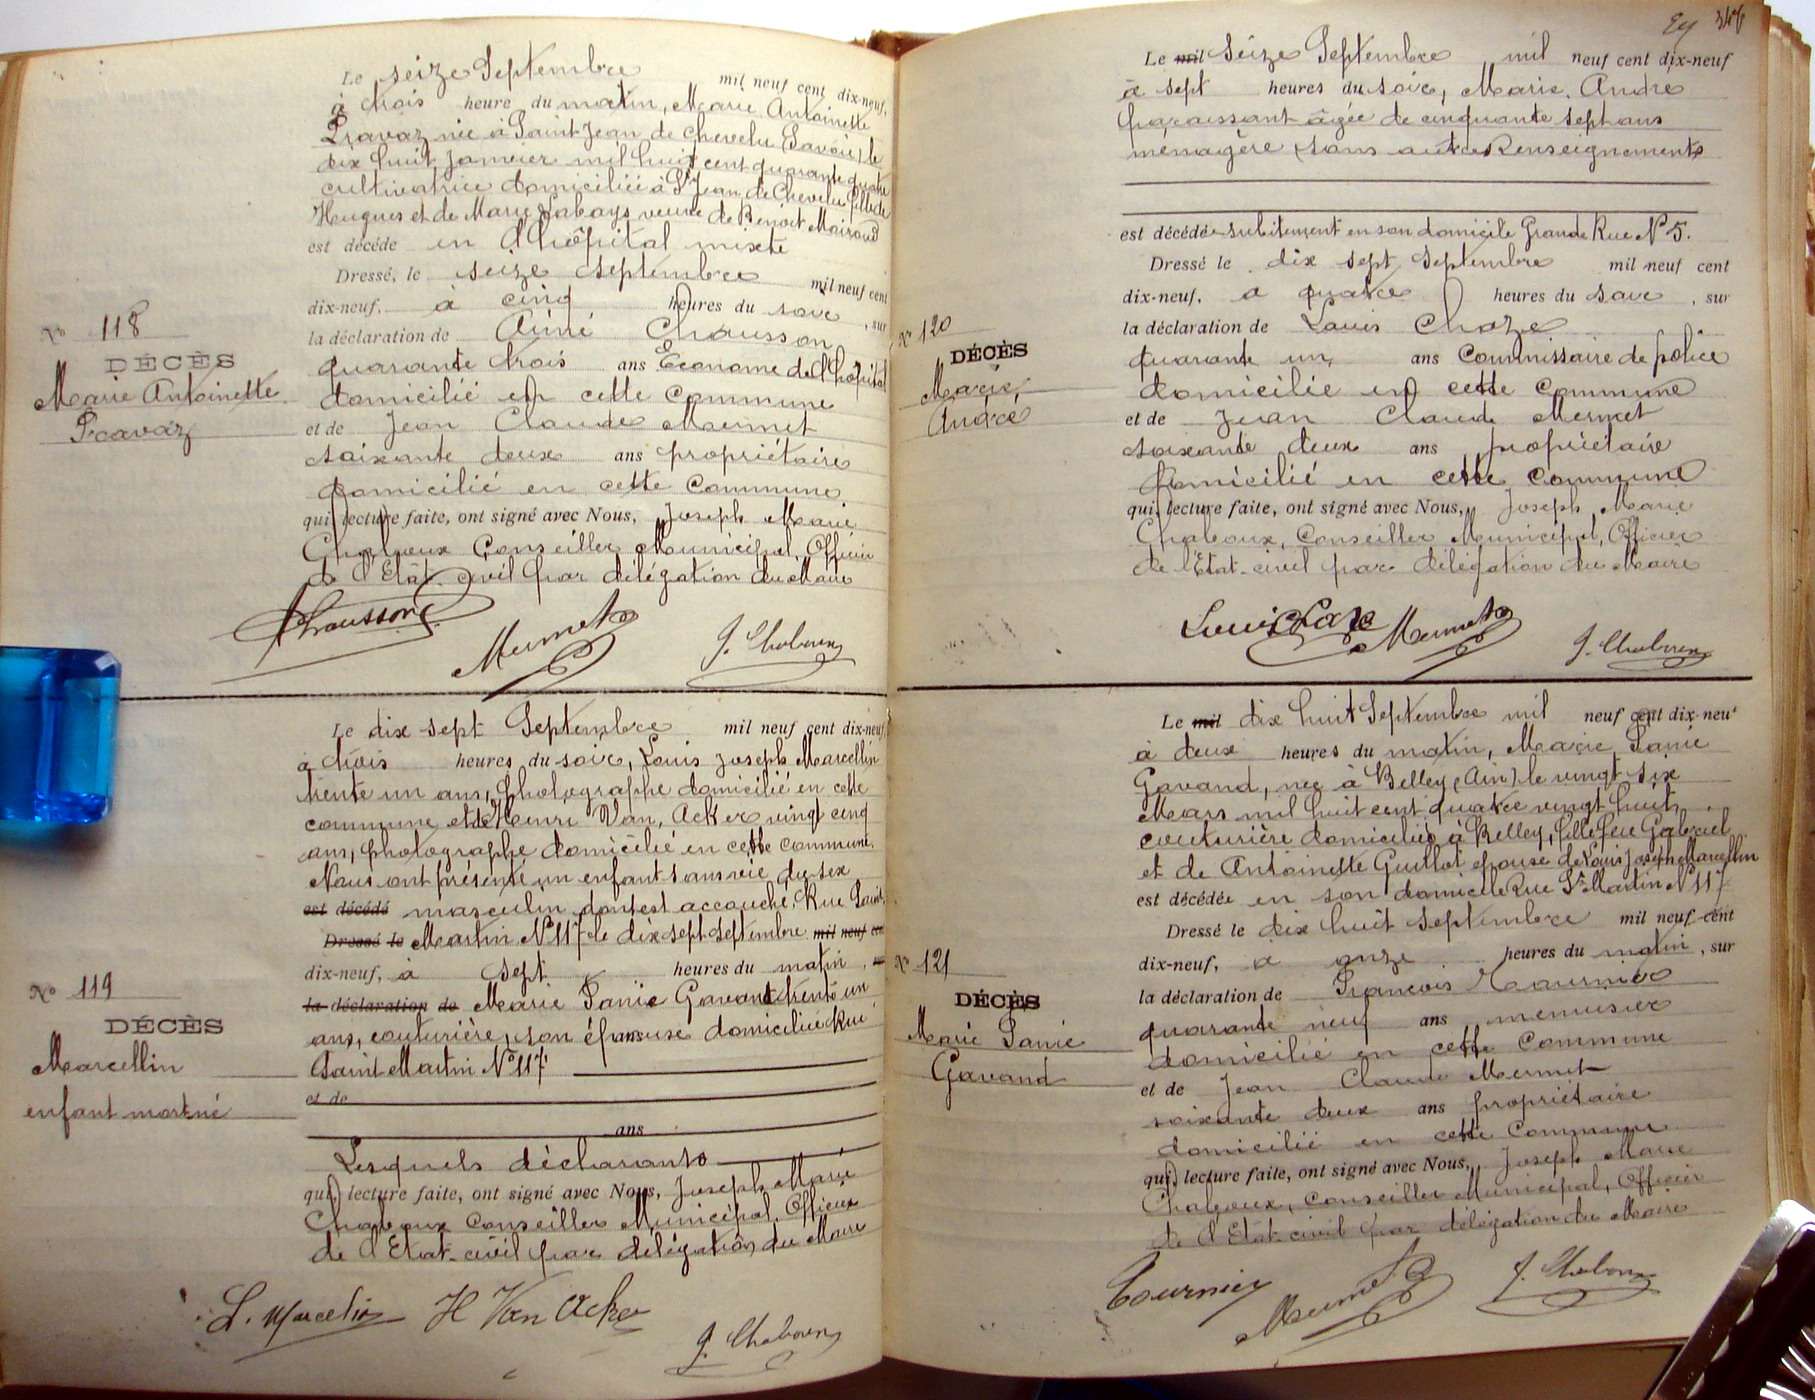 Le seize Septembre mil neuf cent dix-neuf,
à trois heure du matin, Marie Antoinette
Pravaz née à Saint Jean de Chevelu (Savoie) le
dix huit janvier mil huit cent quarante quatre
cultivatrice domiciliée à St Jean de Chevelu fille de
Hugues et de Marie Labays veuve de Benoit Mairoud
est décédé en l'hôpital mixte
Dressé, le seize Septembre mil neuf cent
dix-neuf, à cinq heures du soir, sur
la déclaration de Aimé Chausson
quarante trois ans Econome de l'hôpital
domicilié en cette Commune
et de Jean Claude Mermet
soixante deux ans propriétaire
domicilié en cette Commune
qui, lecture faite, ont signé avec Nous, Joseph Marie
Chaboux Conseiller Municipal, Officier
de l'Etat-civil par délégation du Maire
No 118
DÉCÈS
Marie Antoinette
Pravaz
Chausson
Mermet
J. Chaboux
Le dix sept Septembre mil neuf cent dix-neuf
à trois heures du soir, Louis Joseph Marcellin
trente un ans, photographe domicilié en cette
commune et de Henri Van Acker vingt cinq
ans, photographe domicilié en cette commune.
Nous ont présenté un enfant sans vie du sexe
est décédé masculin dont est accouché, Rue Saint
Dressé le Martin No 117 le dix sept septembre mil neuf cent
dix-neuf, à sept heures du matin,
la déclaration de Marie Janie Gavand trente un
ans, couturière, son épouse domiciliée Rue
Saint Martin No 117
et de
ans
Lesquels déclarants
qui, lecture faite, ont signé avec Nous, Joseph Marie
Chaboux Conseiller Municipal, Officier
de l'Etat-civil par délégation du Maire
No 119
DÉCÈS
Marcellin
enfant mort né
L. Marcellin
H Van Acker
J. Chaboux
347
Le mil Seize Septembre mil neuf cent dix-neuf
à sept heures du soir, Marie André
paraissant âgée de cinquante sept ans
ménagère, sans autres Renseignements
est décédée subitement en son domicile Grande Rue No 5.
Dressé le dix sept Septembre mil neuf cent
dix-neuf, à quatre heures du soir, sur
la déclaration de Louis Choze
quarante un ans Commissaire de police
domicilié en cette Commune
et de Jean Claude Mermet
soixante deux ans propriétaire
domicilié en cette Commune
qui, lecture faite, ont signé avec Nous, Joseph Marie
Chaboux, Conseiller Municipal, Officier
de l'Etat-civil par délégation du Maire
No 120
DÉCÈS
Marie,
André
Louis Choze
Mermet
J. Chaboux
Le mil dix huit Septembre mil neuf cent dix-neuf
à deux heures du matin, Marie Janie
Gavand, née à Belley (Ain) le vingt six
Mars mil huit cent quatre vingt huit,
couturière domiciliée à Belley, fille feu Gabriel
et de Antoinette Guillot épouse de Louis Joseph Marcellin
est décédée en son domicile Rue St Martin No 117
Dressé le dix huit Septembre mil neuf cent
dix-neuf, à onze heures du matin, sur
la déclaration de François Tournier
quarante neuf ans menuisier
domicilié en cette Commune
et de Jean Claude Mermet
soixante deux ans propriétaire
domicilié en cette Commune
qui, lecture faite, ont signé avec Nous, Joseph Marie
Chaboux, Conseiller Municipal, Officier
de l'Etat-civil par délégation du Maire
No 121
DÉCÈS
Marie Janie
Gavand
Tournier
Mermet
J. Chaboux